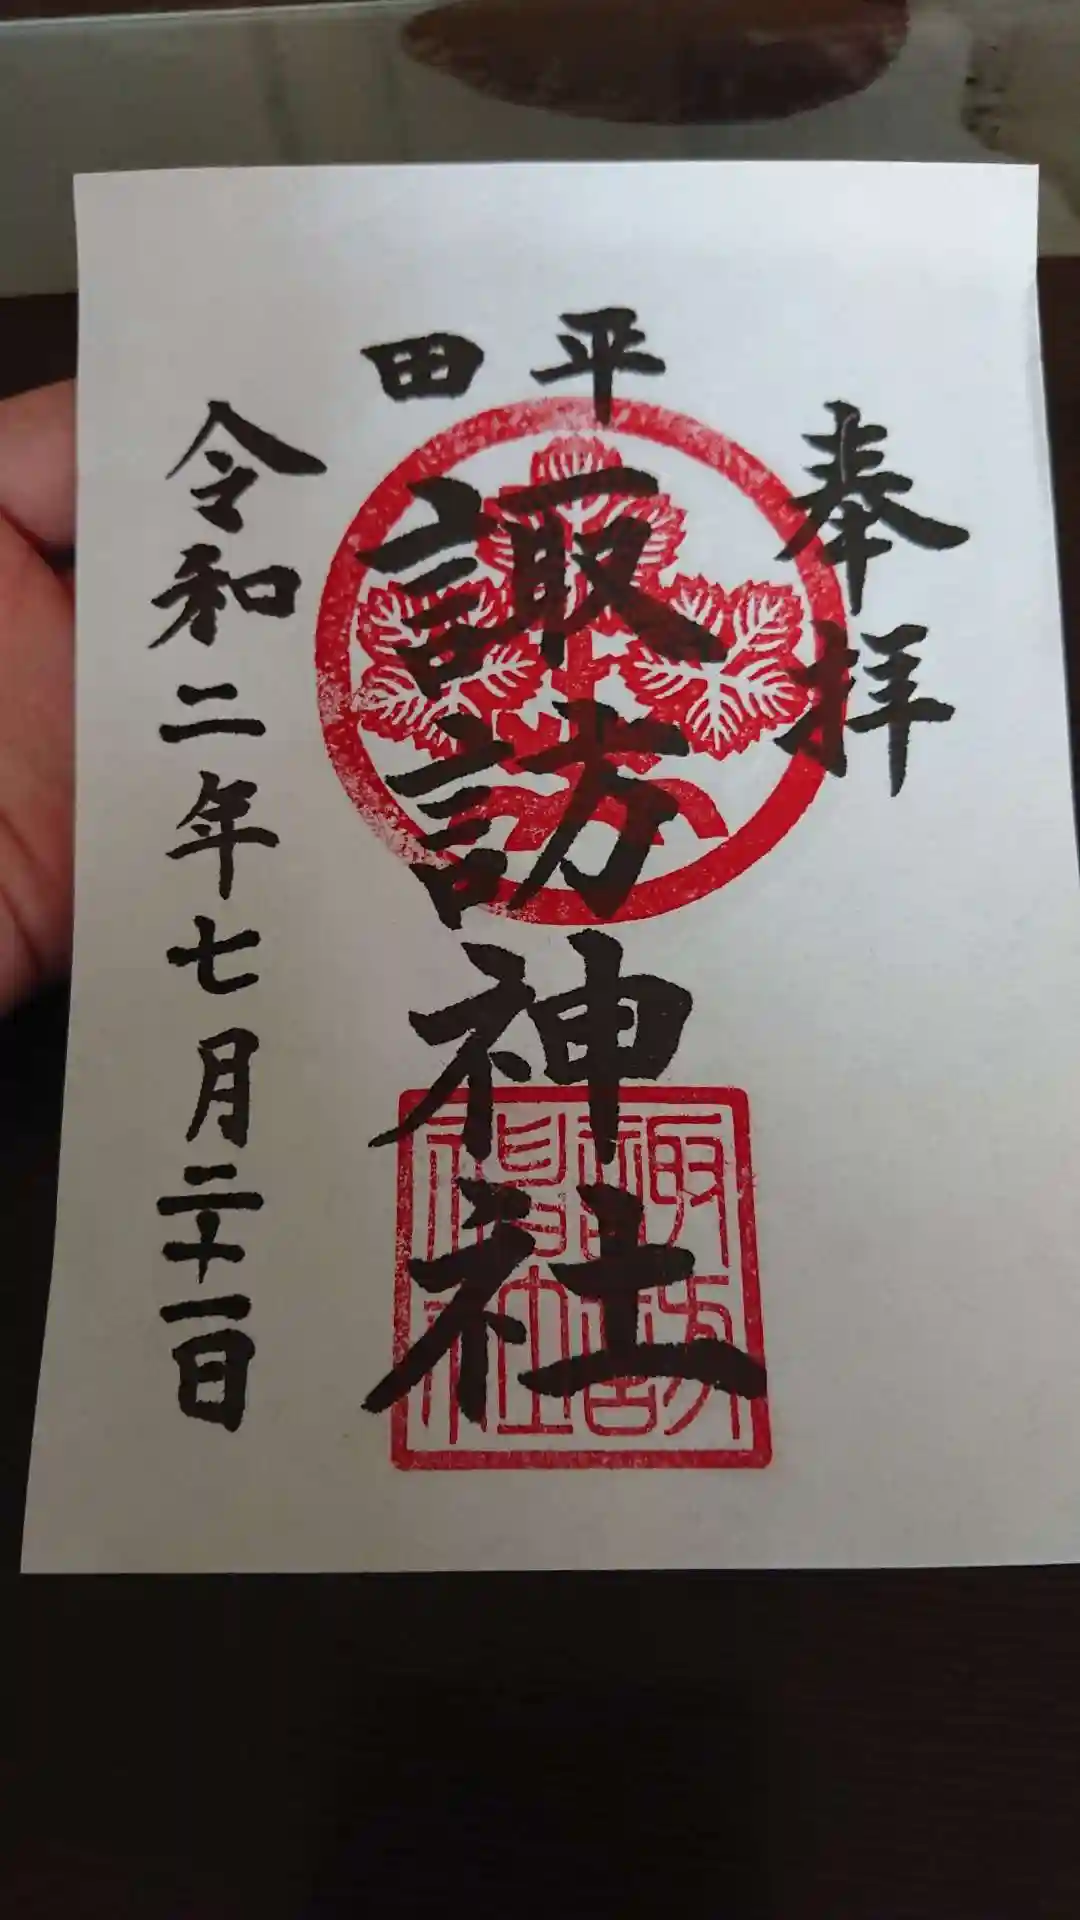 奉拝
平田
諏訪神社
諏訪神社
令和二年七月二十一日